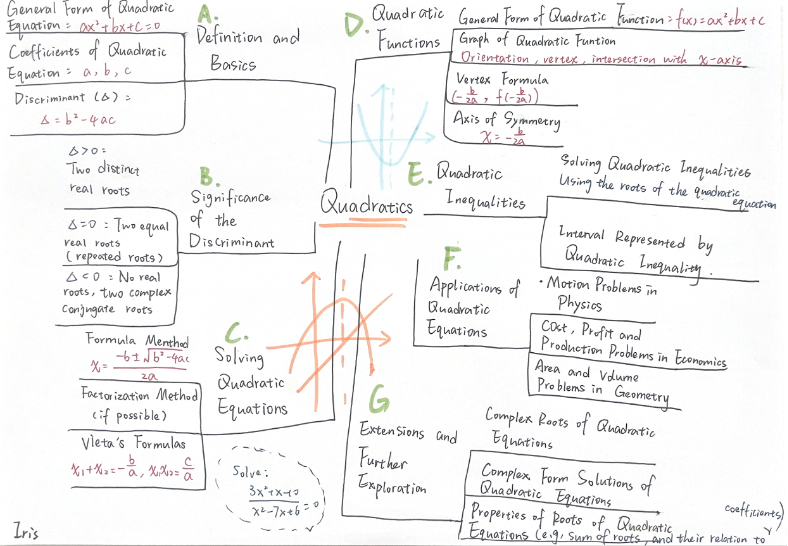 Quadratics
A.
Definition and
Basics
General Form of Quadratic
Equation = ax²+bx+c=0
Coefficients of Quadratic
Equation = a, b, c
Discriminant (Δ) =
Δ = b²-4ac
B.
Significance
of the
Discriminant
Δ>0 =
Two distinct
real roots
Δ=0 = Two equal
real roots
(repeated roots)
Δ<0 = No real
roots, two complex
Conjugate roots
C.
Solving
Quadratic
Equations
Formula Menthod
x = (-b±√(b²-4ac))/2a
Factorization Method
(if possible)
Vleta's Formulas
x₁+x₂=-b/a, x₁x₂=c/a
Solve:
x²-7x+6
D.
Quadratic
Functions
General Form of Quadratic Function = f(x) = ax²+bx+c
Graph of Quadratic Funtion
Orientation, vertex, intersection with x-axis
Vertex Formula
(-b/2a, f(-b/2a))
Axis of Symmetry
x = -b/2a
E.
Quadratic
Inequalities
Solving Quadratic Inequalities
Using the roots of the quadratic
equation
Interval Represented by
Quadratic Inequality.
F.
Applications of
Quadratic
Equations
· Motion Problems in
Physics
Cost, Profit and
Production Problems in Economics
Area and Volume
Problems in Geometry
G
Extensions and
Further
Exploration
Complex Roots of Quadratic
Equations
Complex Form Solutions of
Quadratic Equations
Properties of Roots of Quadratic
Equations (e.g, sum of roots, and their relation to
coefficients)
Iris